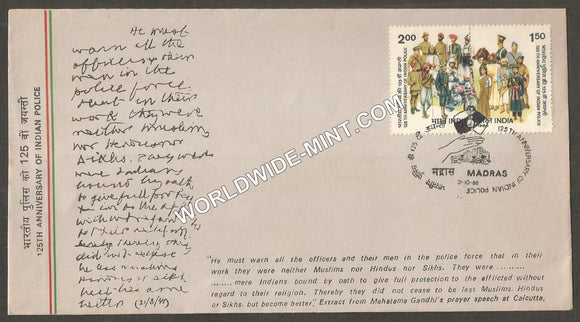 भारतीय पुलिस की 125 वीं जयन्ती
125TH ANNIVERSARY OF INDIAN POLICE
He must
warn all the
officers & their
men in the
police force
that in their
work they were
neither Muslims
nor Hindus nor
Sikhs. They were
mere Indians
bound by oath
to give full
to the
without regard
to their religion.
Thereby they
did not cease
be less Muslims
Hindus or Sikhs
but become
better (21/8/47)
2.00
1.50
भारत INDIA
भारत INDIA
125TH ANNIVERSARY OF INDIAN POLICE
मद्रास MADRAS
21-10-86
WORLDWIDE-MINT.COM
"He must warn all the officers and their men in the police force that in their
work they were neither Muslims nor Hindus nor Sikhs. They were ..........
...... mere Indians bound by oath to give full protection to the afflicted without
regard to their religion. Thereby they did not cease to be less Muslims, Hindus
or Sikhs, but become better," Extract from Mahatama Gandhi's prayer speech at Calcutta,